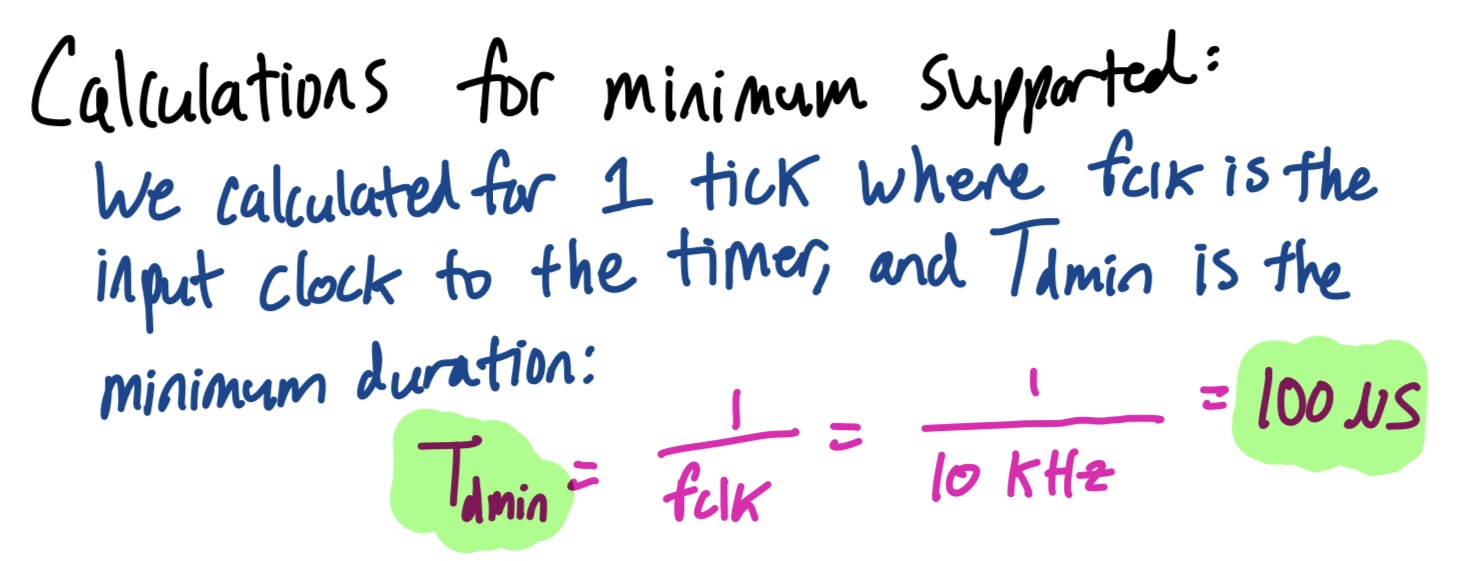 Calculations for minimum supported:
We calculated for 1 tick where fclk is the
input clock to the timer, and Tdmin is the
minimum duration:
Tdmin = 1/fclk = 1/10 KHz = 100 µs